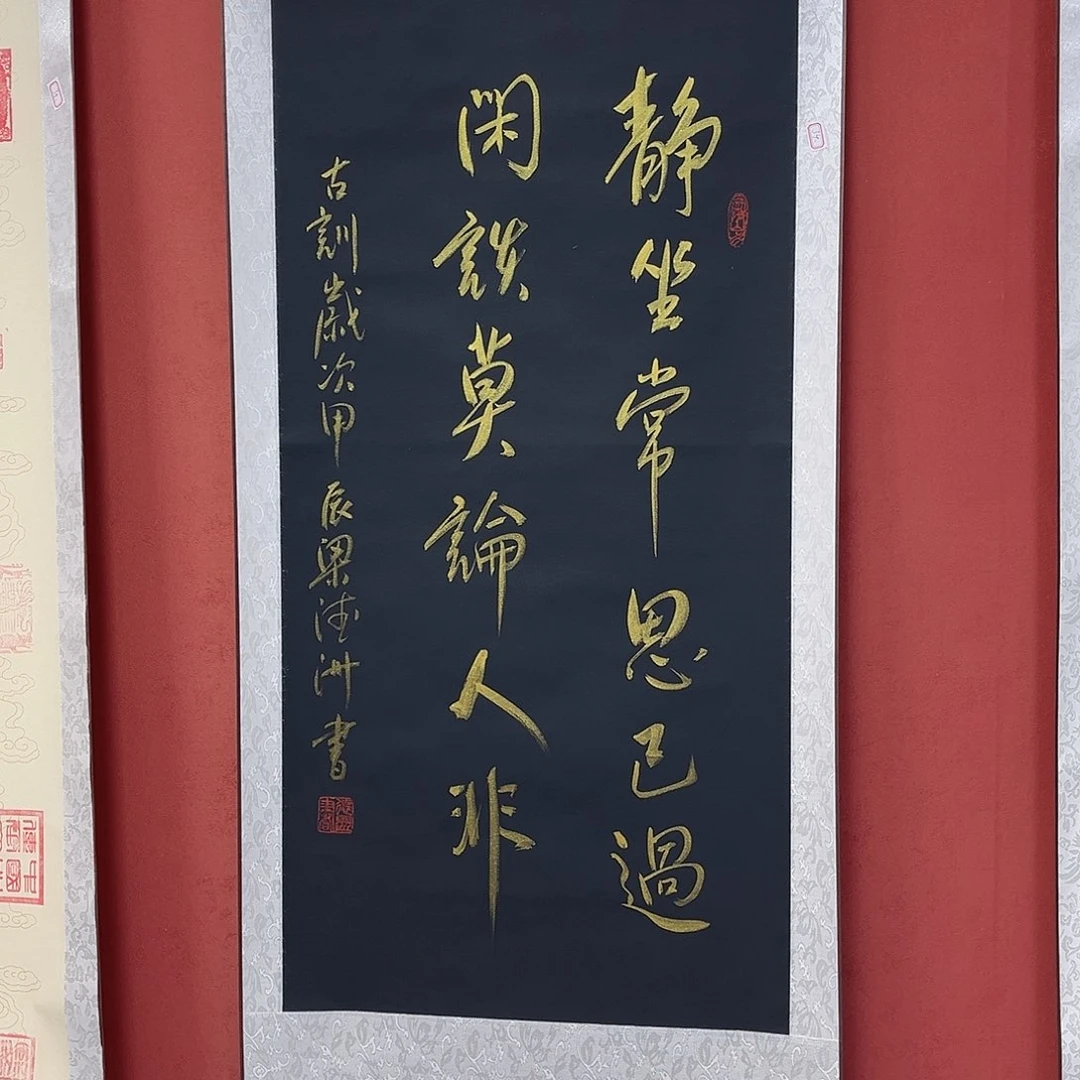 靜坐常思己過
閑談莫論人非
古訓歲次甲辰梁德洲書